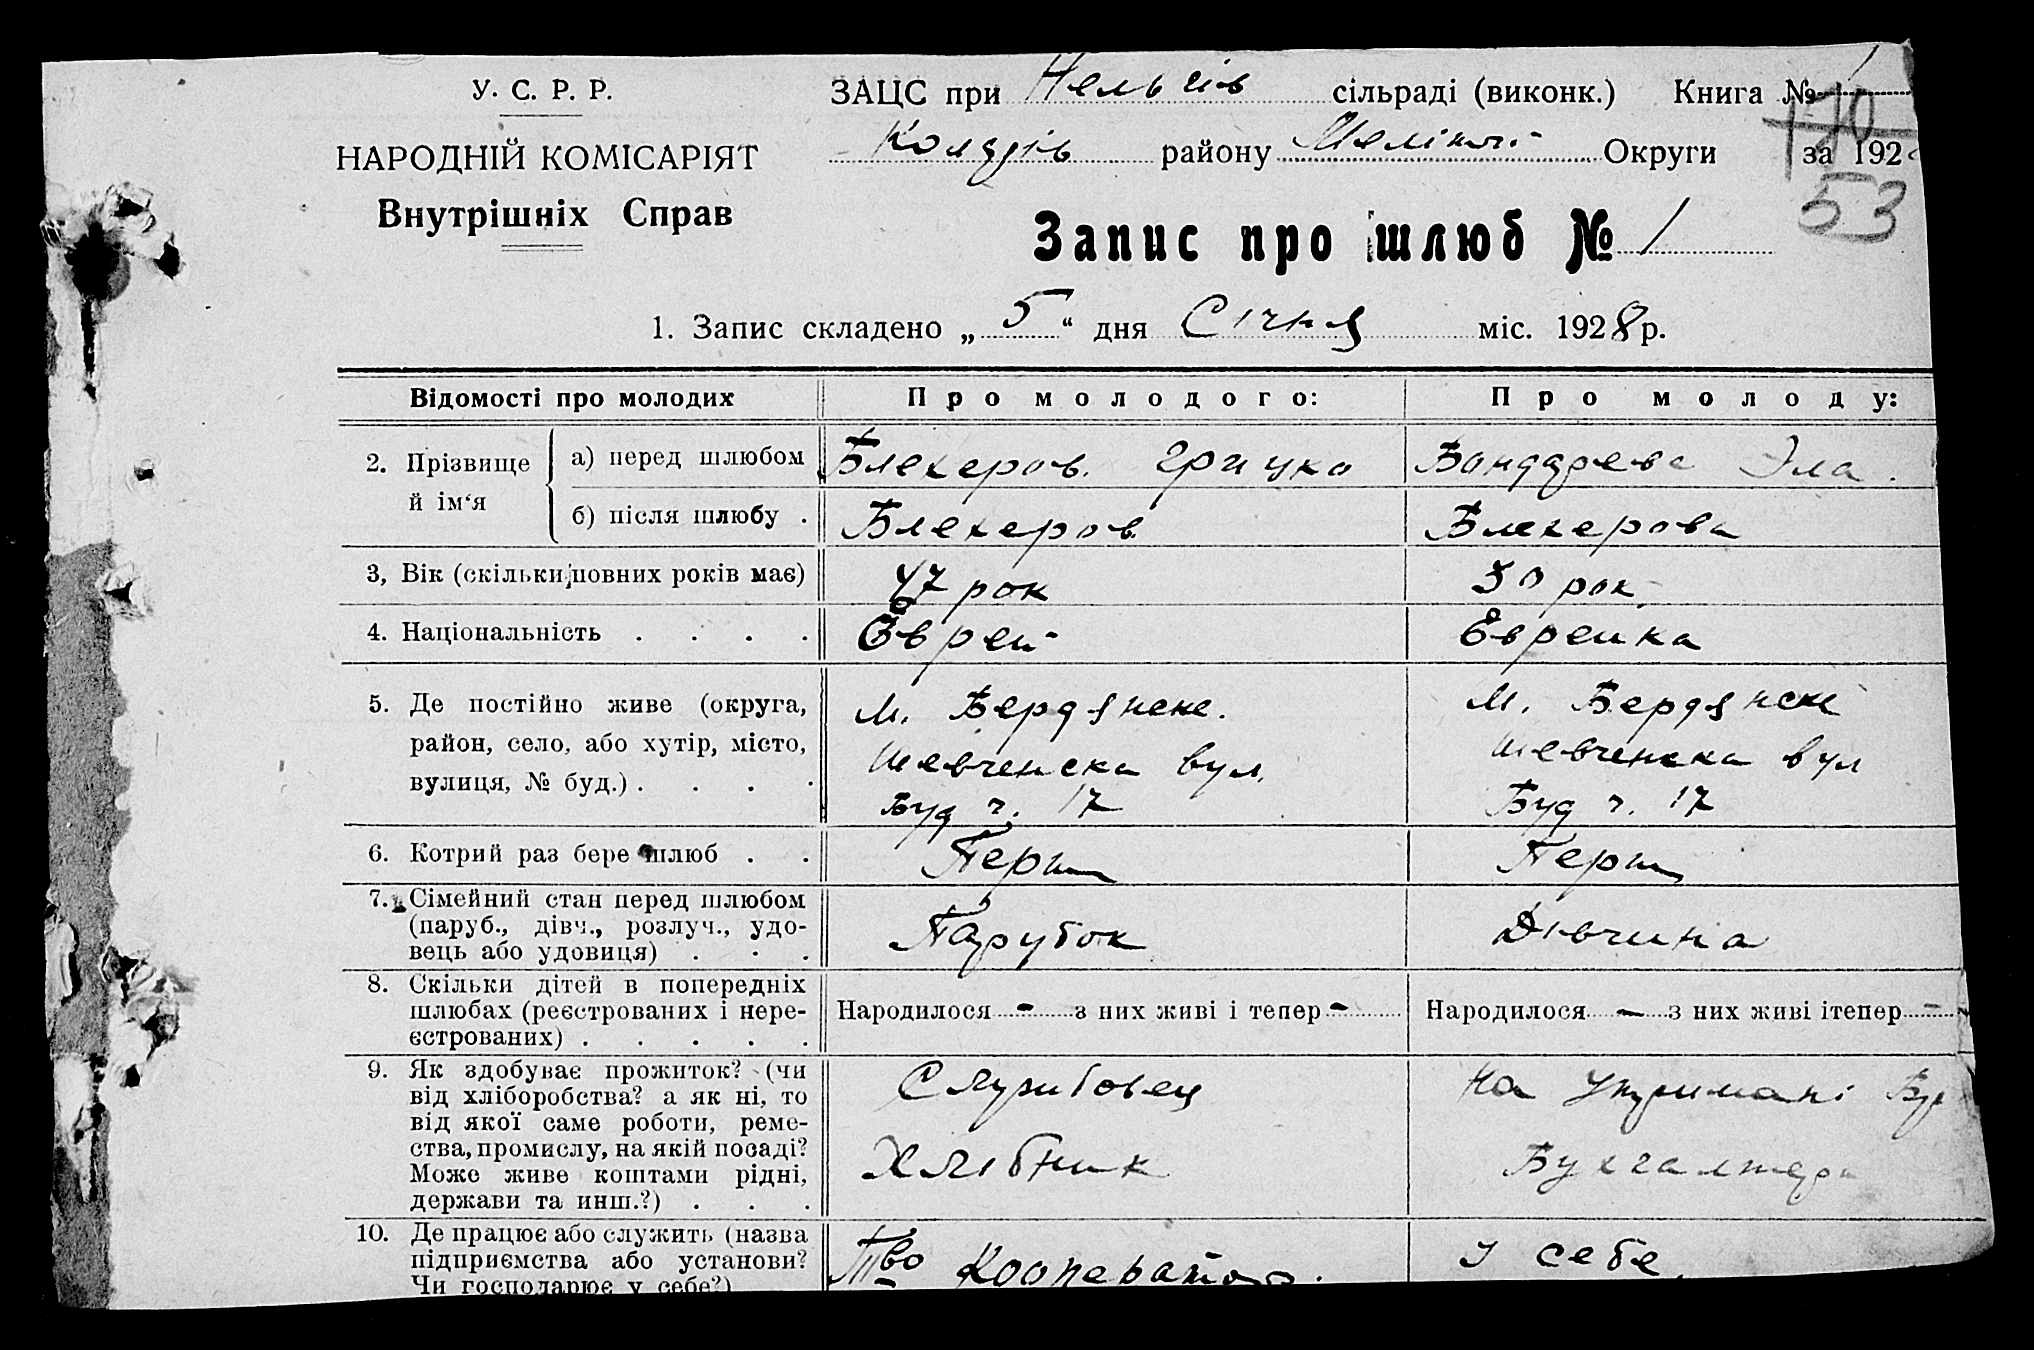 У. С. Р. Р.
НАРОДНІЙ КОМІСАРІЯТ
Внутрішніх Справ
ЗАЦС при Нельгів сільраді (виконк.) Книга № 1
170
району Меліт. Округи за 192
53
Запис про шлюб № 1
1. Запис складено „ 5 “ дня Січня міс. 1928 р.
Відомості про молодих Про молодого: Про молоду:
2. Прізвище й ім‘я
а) перед шлюбом Блехеров. Грицко Бондарева Эла.
б) після шлюбу . Блехеров Блехерова
3, Вік (скільки повних років має) 47 рок 30 рок
4. Національність . . . . Еврей Еврейка
5. Де постійно живе (округа,
район, село, або хутір, місто,
вулиця, № буд.) . . . .
М. Бердянске.
Шевченска вул.
Буд ч. 17
М. Бердянске
Шевченска вул
Буд ч. 17
6. Котрий раз бере шлюб . . Перш Перш
7. Сімейний стан перед шлюбом
(паруб., дівч., розлуч., удо-
вець або удовиця) . . .
Парубок Дівчина
8. Скільки дітей в попередніх
шлюбах (реєстрованих і нере-
єстрованих) . . . . .
Народилося - з них живі і тепер -
Народилося - з них живі ітепер -
9. Як здобуває прожиток? (чи
від хліборобства? а як ні, то
від якої саме роботи, реме-
ства, промислу, на якій посаді?
Може живе коштами рідні,
держави та инш.?) . . .
Службовец
Хлібник
На утримані
Бухгалтера
10. Де працює або служить (назва
підприємства або установи?
Чи господарює у себе?)
Тво Кооператор.
У себе.